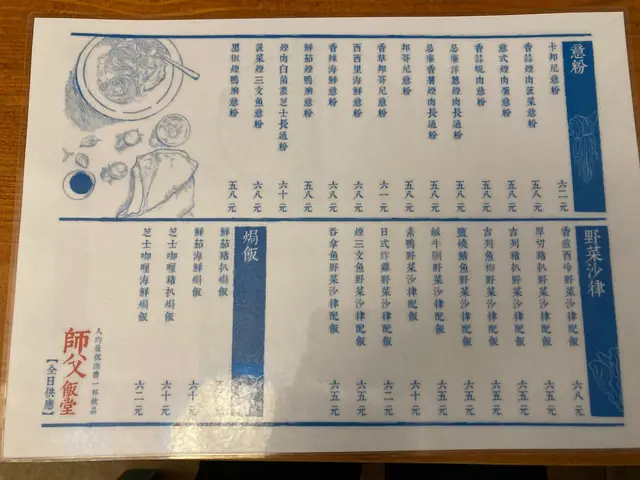 意粉
卡邦尼意粉 六二元
香蒜煙肉菠菜意粉 五八元
意式煙肉蛋意粉 五八元
香蒜蜆肉意粉 五八元
忌廉洋葱煙肉長通粉 五八元
忌廉香薯煙肉長通粉 五八元
邦哥尼意粉 五八元
香草邦哥尼意粉 六一元
西西里海鮮意粉 六八元
香辣海鮮意粉 六八元
鮮茄煙鴨胸意粉 五八元
煙肉白菌濃芝士長通粉 六十元
菠菜煙三文魚意粉 六八元
黑椒煙鴨胸意粉 五八元
野菜沙律
香煎西冷野菜沙律配飯 六八元
厚切豬扒野菜沙律配飯 六五元
吉列豬扒野菜沙律配飯 六五元
吉列魚柳野菜沙律配飯 六五元
鹽燒鯖魚野菜沙律配飯 六五元
鹹牛脷野菜沙律配飯 六五元
素鴨野菜沙律配飯 六十元
日式炸雞野菜沙律配飯 六二元
煙三文魚野菜沙律配飯 六五元
吞拿魚野菜沙律配飯 六五元
焗飯
鮮茄豬扒焗飯
鮮茄海鮮焗飯 六十元
芝士咖喱豬扒焗飯 六十元
芝士咖喱海鮮焗飯 六二元
人均最低消費一杯飲品
師父飯堂
【全日供應】